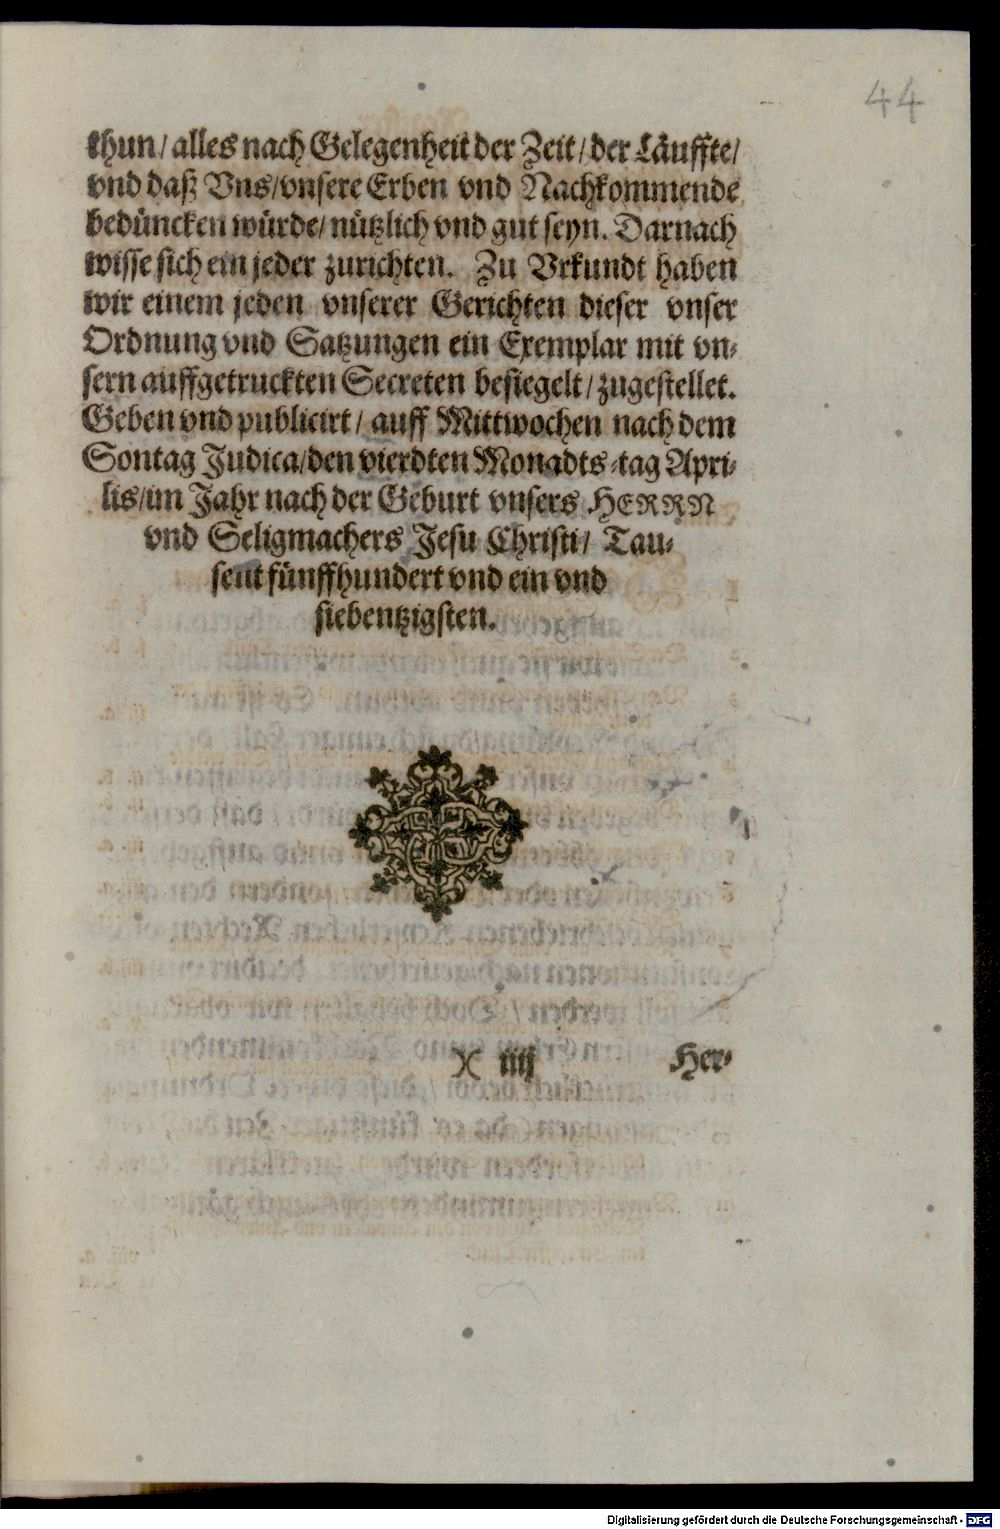 44
thun/ alles nach Gelegenheit der Zeit/ der Läuffte/
vnd daß Vns/ vnsere Erben vnd Nachkommende
bedüncken würde/ nützlich vnd gut seyn. Darnach
wisse sich ein jeder zurichten. Zu Vrkundt haben
wir einem jeden vnserer Gerichten dieser vnser
Ordnung vnd Satzungen ein Exemplar mit vn-
sern auffgetruckten Secreten besiegelt/ zugestellet.
Geben vnd publicirt/ auff Mittwochen nach dem
Sontag Judica/ den vierdten Monadts-tag Apri-
lis/ im Jahr nach der Geburt vnsers HERRN
vnd Seligmachers Jesu Christi/ Tau-
sent fünffhundert vnd ein vnd
siebentzigsten.
X iiij Her-
Digitalisierung gefördert durch die Deutsche Forschungsgemeinschaft - DFG